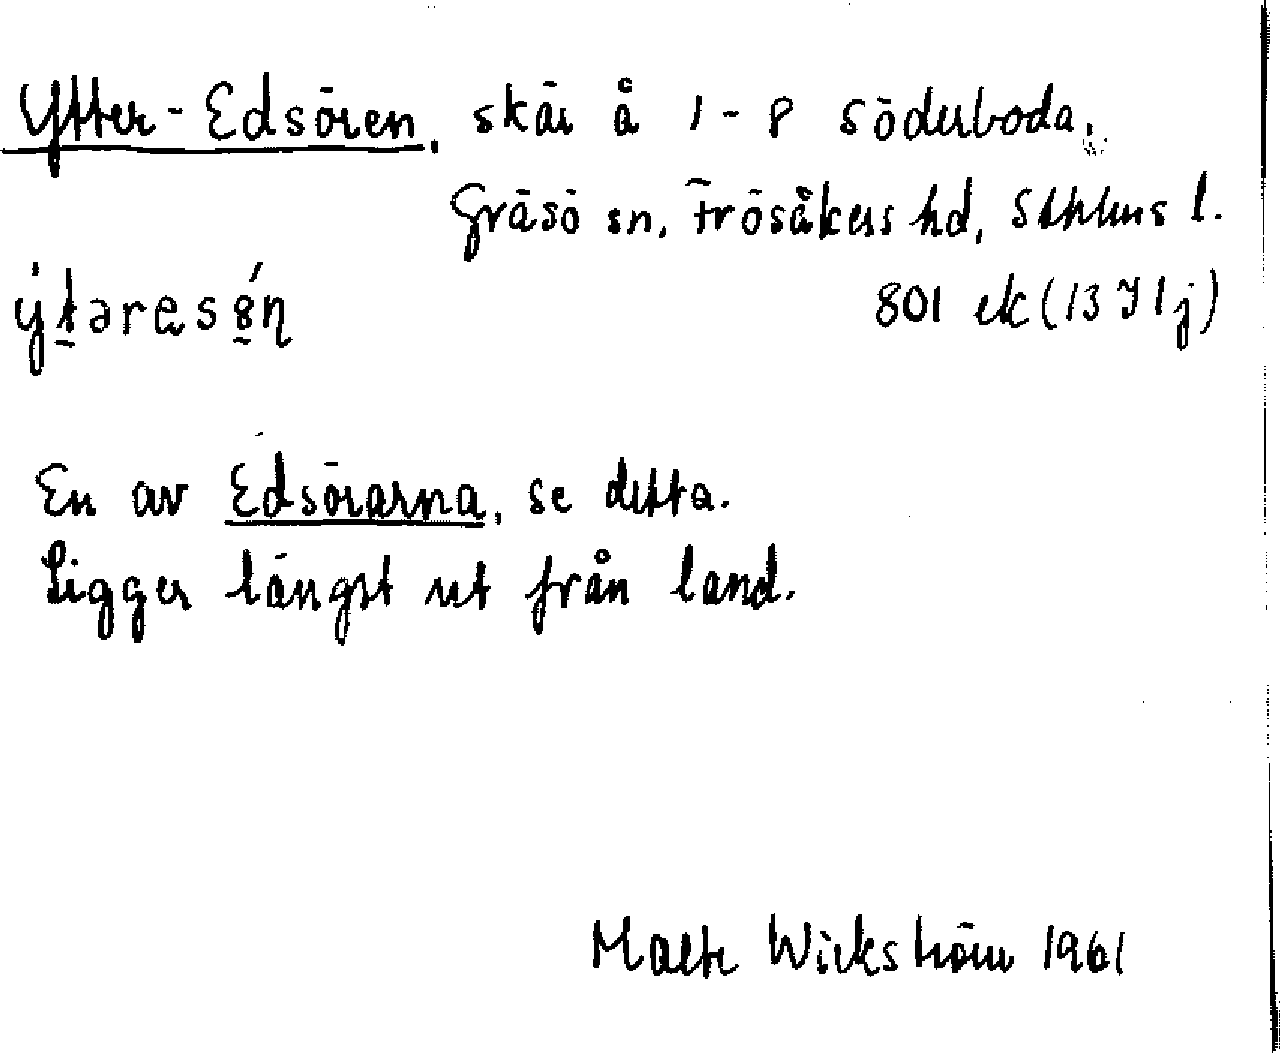 Ytter-Edsören, skär å 1-8 Söderboda,
Gräsö sn, Frösåkers hd, Sthlms l.
801 ek (13 I 1j)
En av Edsörarna, se detta.
Ligger längst ut från land.
Malte Wickström 1961